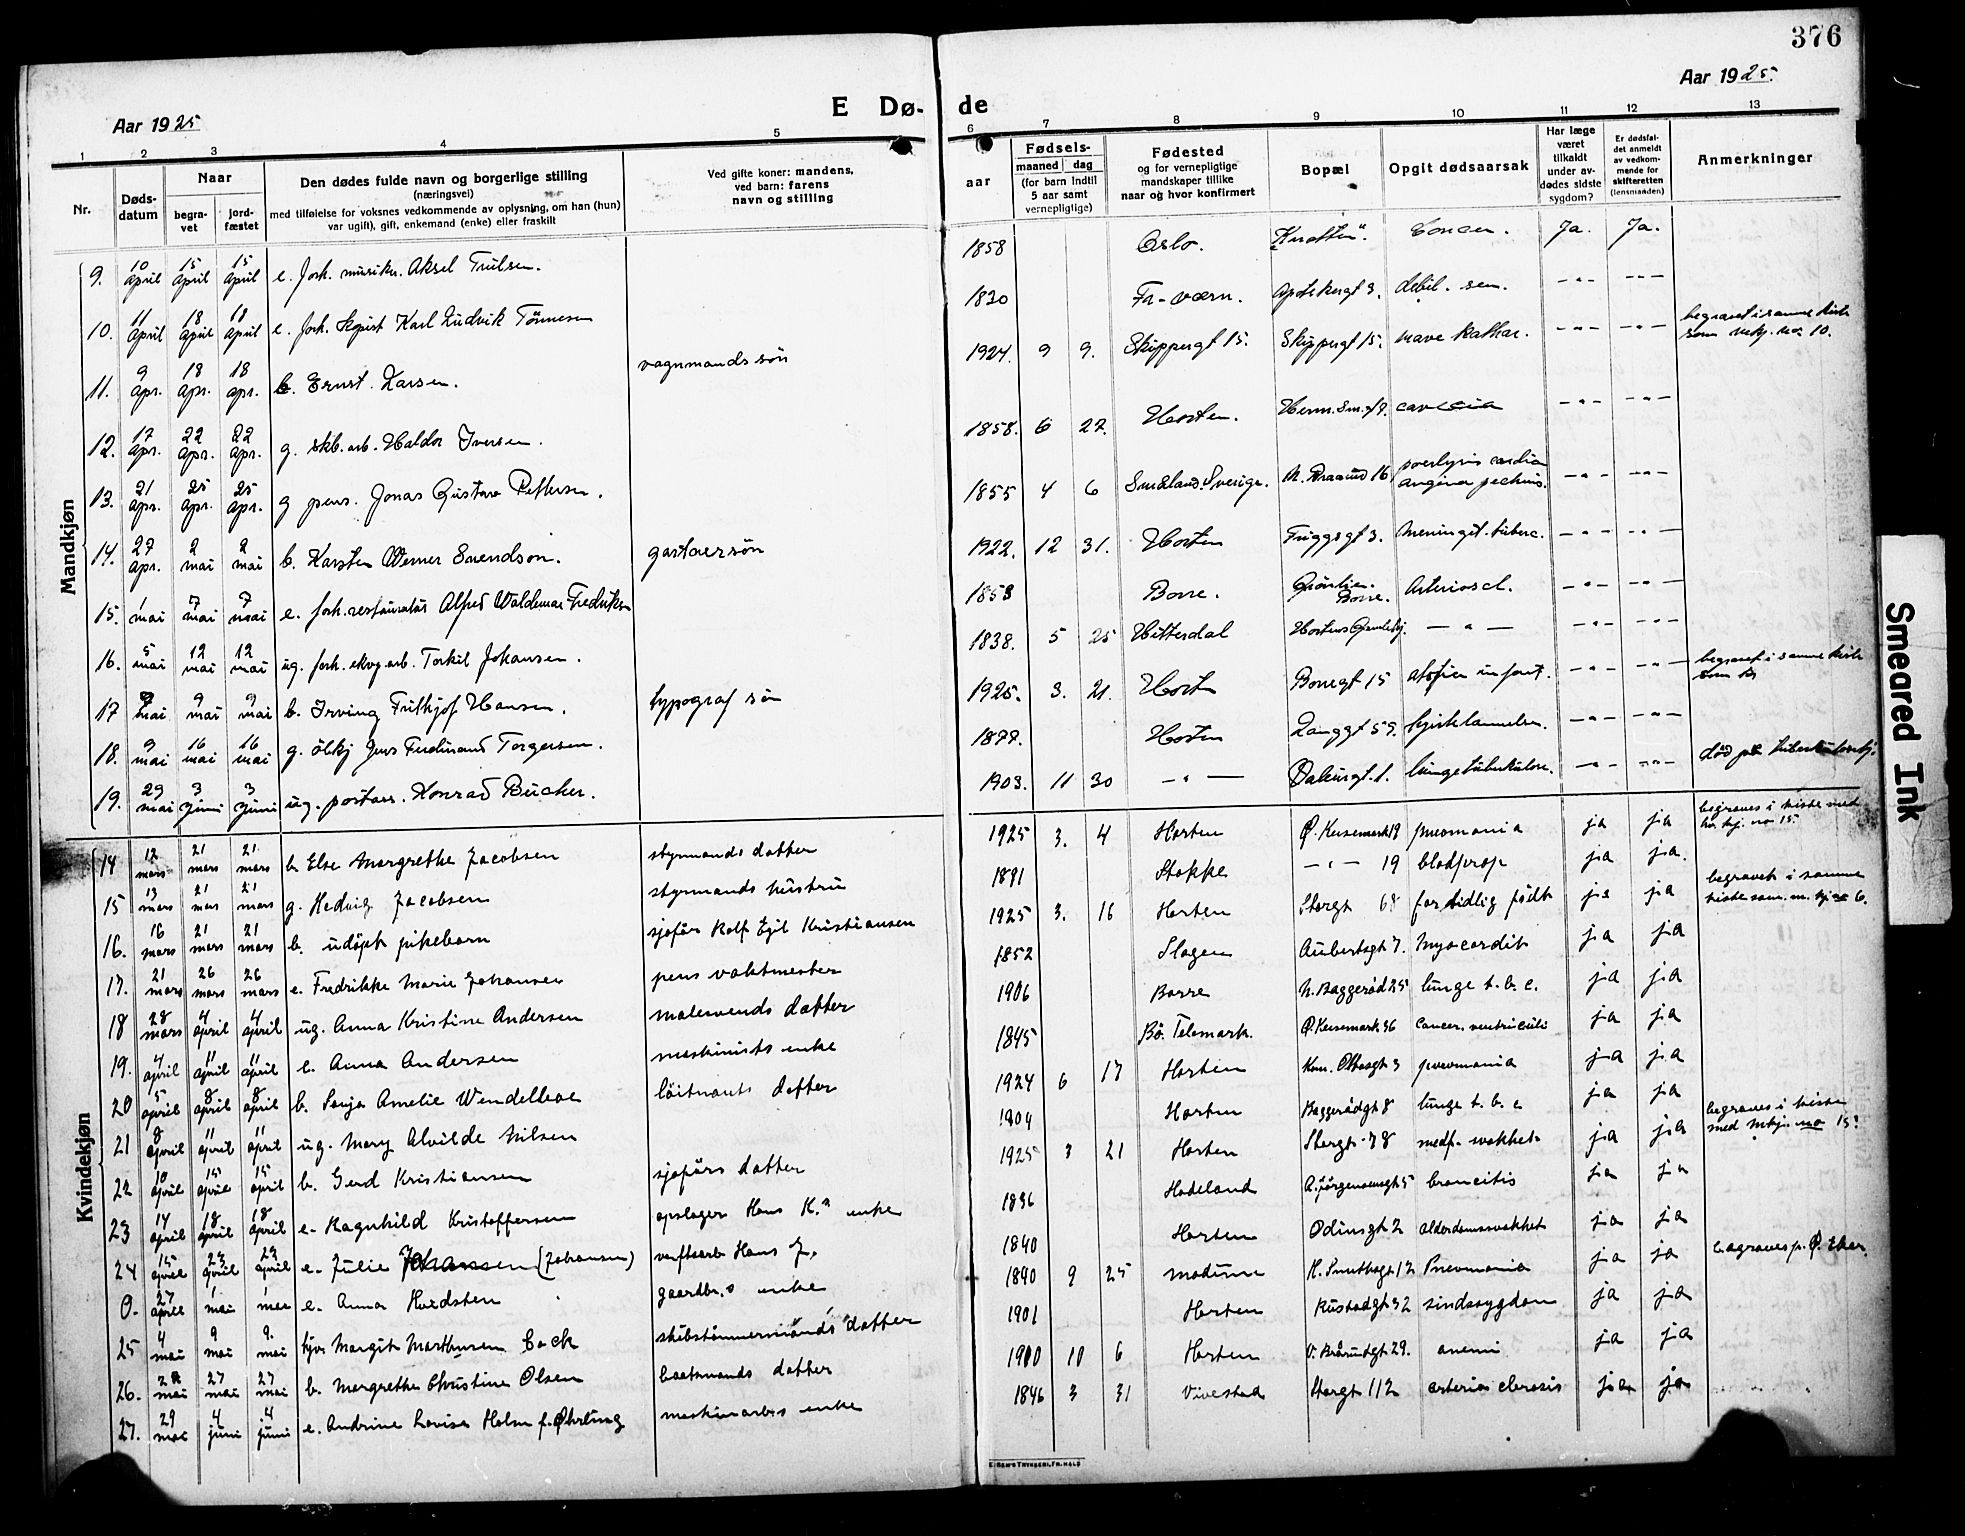 376
Aar 1925
E Dø-de
Aar 1925.
1 2 3 4 5 6 7 8 9 10 11 12 13
Nr.
Døds-datum
Naar
begra-vet
jord-fæstet
Den dødes fulde navn og borgerlige stilling
(næringsvei)
med tilføielse for voksnes vedkommende av oplysning, om han (hun)
var ugift), gift, enkemand (enke) eller fraskilt
Ved gifte koner: mandens,
ved barn: farens
navn og stilling
aar
Fødsels-
maaned dag
(for barn indtil
5 aar samt
vernepligtige)
Fødested
og for vernepligtige
mandskaper tillike
naar og hvor konfirmert
Bopæl
Opgit dødsaarsak
Har læge
været
tilkaldt
under av-
dødes sidste
sygdom?
Er dødsfal-
det anmeldt
av vedkom-
mende for
skifteretten
(lensmanden)
Anmerkninger
Mandkjøn
9. 10 april 15 april 15 april e. forh. musiker. Aksel Trulsen. 1858 Oslo. "Knatten". Cancer. Ja. Ja.
10. 11 april 18 april 18 april e. forh. Karl Ludvik Tönnesen 1830 Fr-værn. Apotekergt 3. debil. sen. -"- -"-
11. 9 apr. 18 apr. 18 apr. b. Ernst. Larsen. vognmands søn 1924. 9 9. Skippergt 15. Skippergt 15. mave kathar. -"- -"- begravet i samme kiste som mkj. no. 10.
12. 17 apr. 22 apr. 22 apr. g. skb. arb. Haldor Iversen. 1858. 6 27. Horten. -"- -"-
13. 21 apr. 25 apr. 25 apr. g pens. Jonas Gustav Pettersen. 1855 4 6 Småland. Sverige. 16 angina pectoris. -"- -"-
14. 27 apr. 2 mai 2 mai b. Karsten Werner Svendson. gartnersøn 1922. 12 31. Horten Friggsgt 3. meningit. tuberc. -"- -"-
15. 1 mai 7 mai 7 mai e. forh. restauratør Alfred Waldemar Fredriksen 1853 Borre. Grønlien. Borre. Arterioscl. -"- -"-
16. 5 mai 12 mai 12 mai ug. forh. arb. Torkil Johansen. 1838. 5 25 Hitterdal Hortens Gamlehj. -"- -"- -"-
17 mai 9 mai 9 mai b. Irving Frithjof Hansen. typograf søn 1925. 3. 21. Horten Borregt 15 -"- -"- begravet i samme kiste som
18. 9 mai 16 mai 16 mai g. ölkj Jens Ferdinand Torgersen. 1877. Horten Langgt 59. hjertelammelse. -"- -"-
19. 29 mai 3 juni 3 juni ug. postass. Konrad Bücher. 1903. 11 30 -"- lungetuberkulose. -"- -"- død på tuberkulosehj.
Kvindekjøn
14 12 mars 21 mars 21 mars b. Else Margrethe Jacobsen styrmands datter 1925 3. 4 Horten Ø. Keisemark 19 pneomonia ja ja begraves i kiste med kv. kj. no 15.
15 13 mars 21 mars 21 mars g. Hedvig Jacobsen styrmands hustru 1891 Stokke -"- 19 blodprop ja ja.
16. 16 mars 21 mars 21 mars b. udöpt pikebarn sjofør Rolf Egil Kristiansen 1925 3. 16 Horten Storgt 68 for tidlig født ja ja begravet i samme kiste som. m. kj no 6.
17. 21 mars 26 mars 26 mars e. Fredrikke Marie Johansen pens vaktmester 1852 Slagen Aubertsgt 7. Myocardit ja ja
18 28 mars 4 april 4 april ug. Anna Kristine Andersen malersvends datter 1906 Borre N. Baggerød 25 lunge t. b. c. ja ja
19. 4 april 11 april 11 april e. Anna Andersen maskinists enke 1845 Bö. Telemark. Ø. Keisemark 36 cancer. ventriculi ja ja
20 5 april 8 april 8 april b. Sonja Amelie Wendelboe löitnants datter 1924 6 17 Horten Kom. Ottosgt 3 pneumonia ja ja
21 8 april 11 april 11 april ug. Mary Alvilde Nilsen 1904 Horten Baggerødgt 8 lunge t. b. c ja ja
22 10 april 15 april 15 april b. Gerd Kristiansen sjoførs datter 1925 3 21 Horten Storgt 78 medf. svakhet ja ja begraves i kiste med mkj. no 15?
23 14 april 18 april 18 april e. Ragnhild Kristoffersen opslager Hans K.s enke 1836 Hadeland A. Jörgensensgt 5 broncitis ja ja
24 15 april 23 april 23 april e. Julie Johansen (Johansen) verftsarb Hans J. 1840 Horten Odinsgt 2 alderdomssvakhet ja ja
0. 27 april 1 mai 1 mai e. Anna Hvidsten gaardbr.s enke 1840 9 25 modum 12 Pneumonia ja ja begraves p. Ø. Eker.
25 4 mai 9 mai 9. mai Margit Marthinsen Bock skibstömmermands datter 1901 Horten Rustadgt 32 sindssygdom ja ja
26. mai 27 mai 27 mai b. Margrethe Christine Olsen baatsmands datter 1910 10 6 Horten V. Brårudgt 29. anemi ja ja
27. 29 mai 4 juni 4 juni e. Andrine Lovise Holm f. Øhrling maskinarbs enke 1846 3 31 Vivestad Storgt 112 arterio sclerosis ja ja
E. SEM'S TRYKKERI, FR.HALD
Smeared Ink